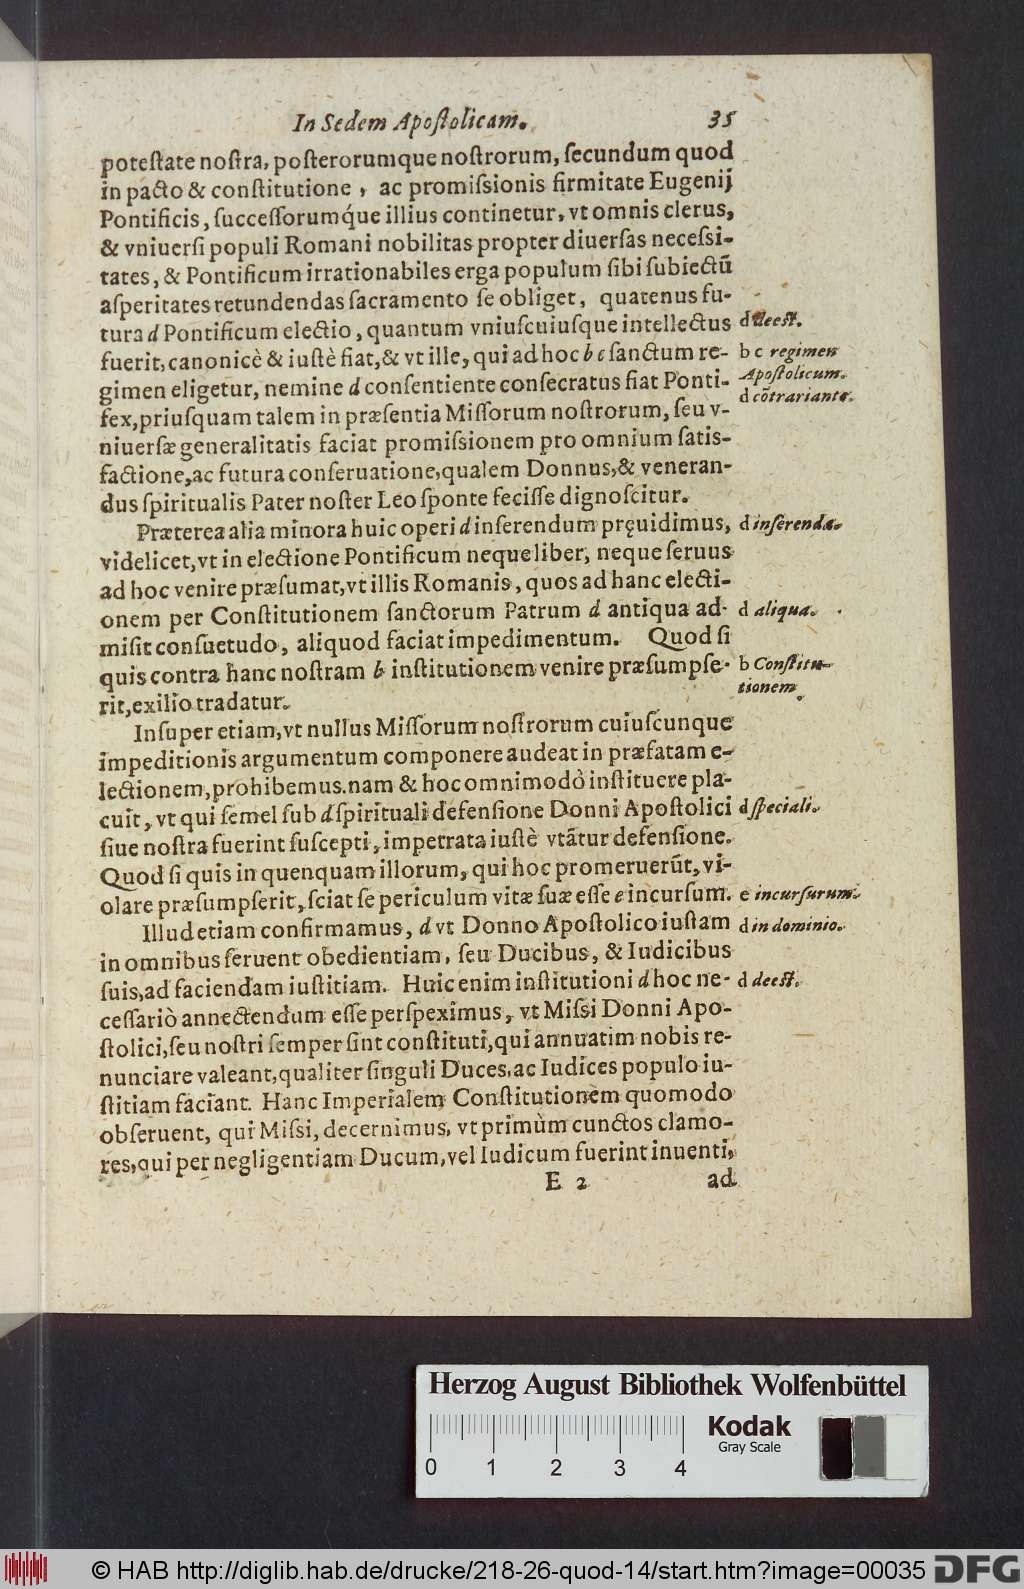 In Sedem Apoſtolicam. 35
poteſtate noſtra, poſterorumque noſtrorum, ſecundum quod
in pacto & conſtitutione, ac promiſsionis firmitate Eugenij
Pontificis, ſucceſſorumq́ue illius continetur, vt omnis clerus,
& vniuerſi populi Romani nobilitas propter diuerſas neceſsi-
tates, & Pontificum irrationabiles erga populum ſibi ſubiectũ
aſperitates retundendas ſacramento ſe obliget, quatenus fu-
tura d Pontificum electio, quantum vniuſcuiuſque intellectus
d deeſt.
fuerit, canonicè & iuſtè fiat, & vt ille, qui ad hoc b c ſanctum re-
b c regimen
Apoſtolicum.
gimen eligetur, nemine d conſentiente conſecratus fiat Ponti-
d cõtrariante.
fex, priuſquam talem in præſentia Miſſorum noſtrorum, ſeu v-
niuerſæ generalitatis faciat promiſsionem pro omnium ſatis-
factione, ac futura conſeruatione, qualem Donnus, & veneran-
dus ſpiritualis Pater noſter Leo ſponte feciſſe dignoſcitur.
Præterea alia minora huic operi d inſerendum pręuidimus,
d inſerenda.
videlicet, vt in electione Pontificum neque liber, neque ſeruus
ad hoc venire præſumat, vt illis Romanis, quos ad hanc electi-
onem per Conſtitutionem ſanctorum Patrum d antiqua ad-
d aliqua.
miſit conſuetudo, aliquod faciat impedimentum. Quod ſi
quis contra hanc noſtram b inſtitutionem venire præſumpſe-
b Conſtitu-
tionem.
rit, exilio tradatur.
Inſuper etiam, vt nullus Miſſorum noſtrorum cuiuſcunque
impeditionis argumentum componere audeat in præfatam e-
lectionem, prohibemus. nam & hoc omnimodò inſtituere pla-
cuit, vt qui ſemel ſub d ſpirituali defenſione Donni Apoſtolici
d ſpeciali.
ſiue noſtra fuerint ſuſcepti, impetrata iuſtè vtãtur defenſione.
Quod ſi quis in quenquam illorum, qui hoc promeruerũt, vi-
olare præſumpſerit, ſciat ſe periculum vitæ ſuæ eſſe e incurſum.
e incurſurum.
Illud etiam confirmamus, d vt Donno Apoſtolico iuſtam
d in dominio.
in omnibus ſeruent obedientiam, ſeu Ducibus, & Iudicibus
ſuis, ad faciendam iuſtitiam. Huic enim inſtitutioni d hoc ne-
d deeſt.
ceſſariò annectendum eſſe perſpeximus, vt Miſsi Donni Apo-
ſtolici, ſeu noſtri ſemper ſint conſtituti, qui annuatim nobis re-
nunciare valeant, qualiter ſinguli Duces, ac Iudices populo iu-
ſtitiam faciant. Hanc Imperialem Conſtitutionèm quomodo
obſeruent, qui Miſsi, decernimus, vt primùm cunctos clamo-
res, qui per negligentiam Ducum, vel Iudicum fuerint inuenti,
E 2 ad
Herzog August Bibliothek Wolfenbüttel
Kodak
Gray Scale
0 1 2 3 4
© HAB http://diglib.hab.de/drucke/218-26-quod-14/start.htm?image=00035
DFG